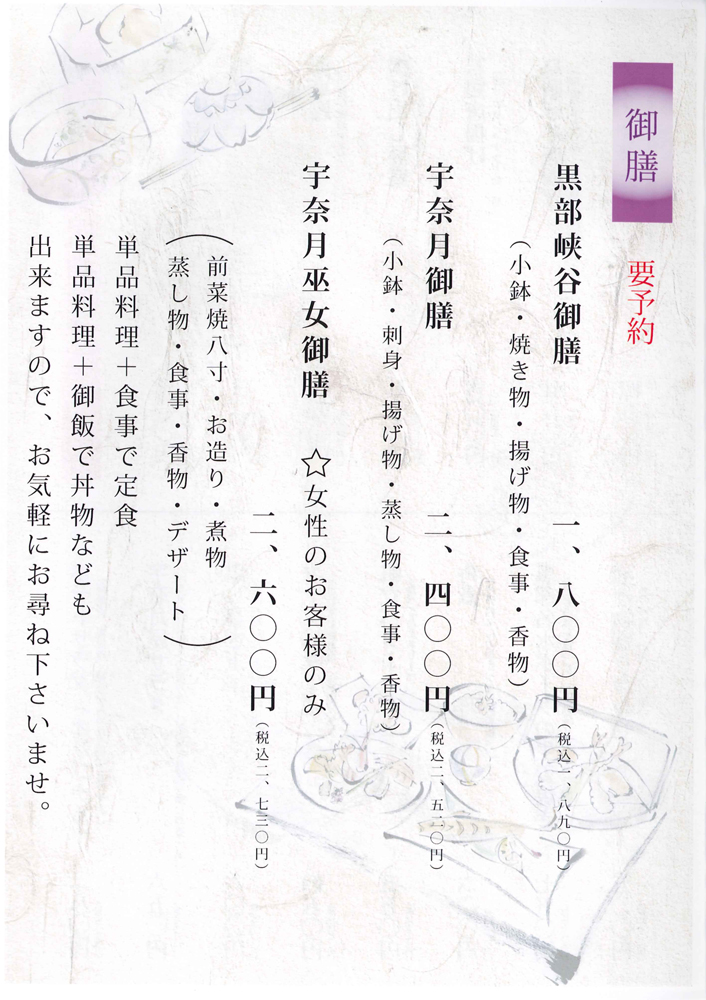 御膳
要予約
黒部峡谷御膳
一、八〇〇円(税込一、八九〇円)
(小鉢・焼き物・揚げ物・食事・香物)
宇奈月御膳
二、四〇〇円(税込二、五二〇円)
(小鉢・刺身・揚げ物・蒸し物・食事・香物)
宇奈月巫女御膳 ☆女性のお客様のみ
二、六〇〇円(税込二、七三〇円)
(前菜焼八寸・お造り・煮物
蒸し物・食事・香物・デザート)
単品料理+食事で定食
単品料理+御飯で丼物なども
出来ますので、お気軽にお尋ね下さいませ。